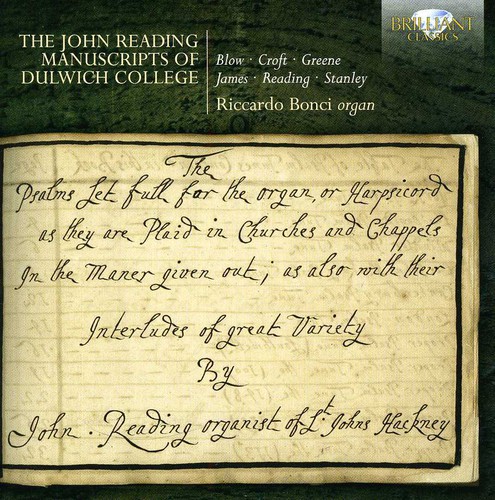 THE JOHN READING
MANUSCRIPTS OF
DULWICH COLLEGE
Blow · Croft · Greene
James · Reading · Stanley
Riccardo Bonci organ
BRILLIANT
CLASSICS
The
Psalms Set full for the organ, or Harpsicord
as they are Plaid in Churches and Chappels
In the Maner given out; as also with their
Interludes of great Variety
By
John. Reading organist of St. Johns Hackney